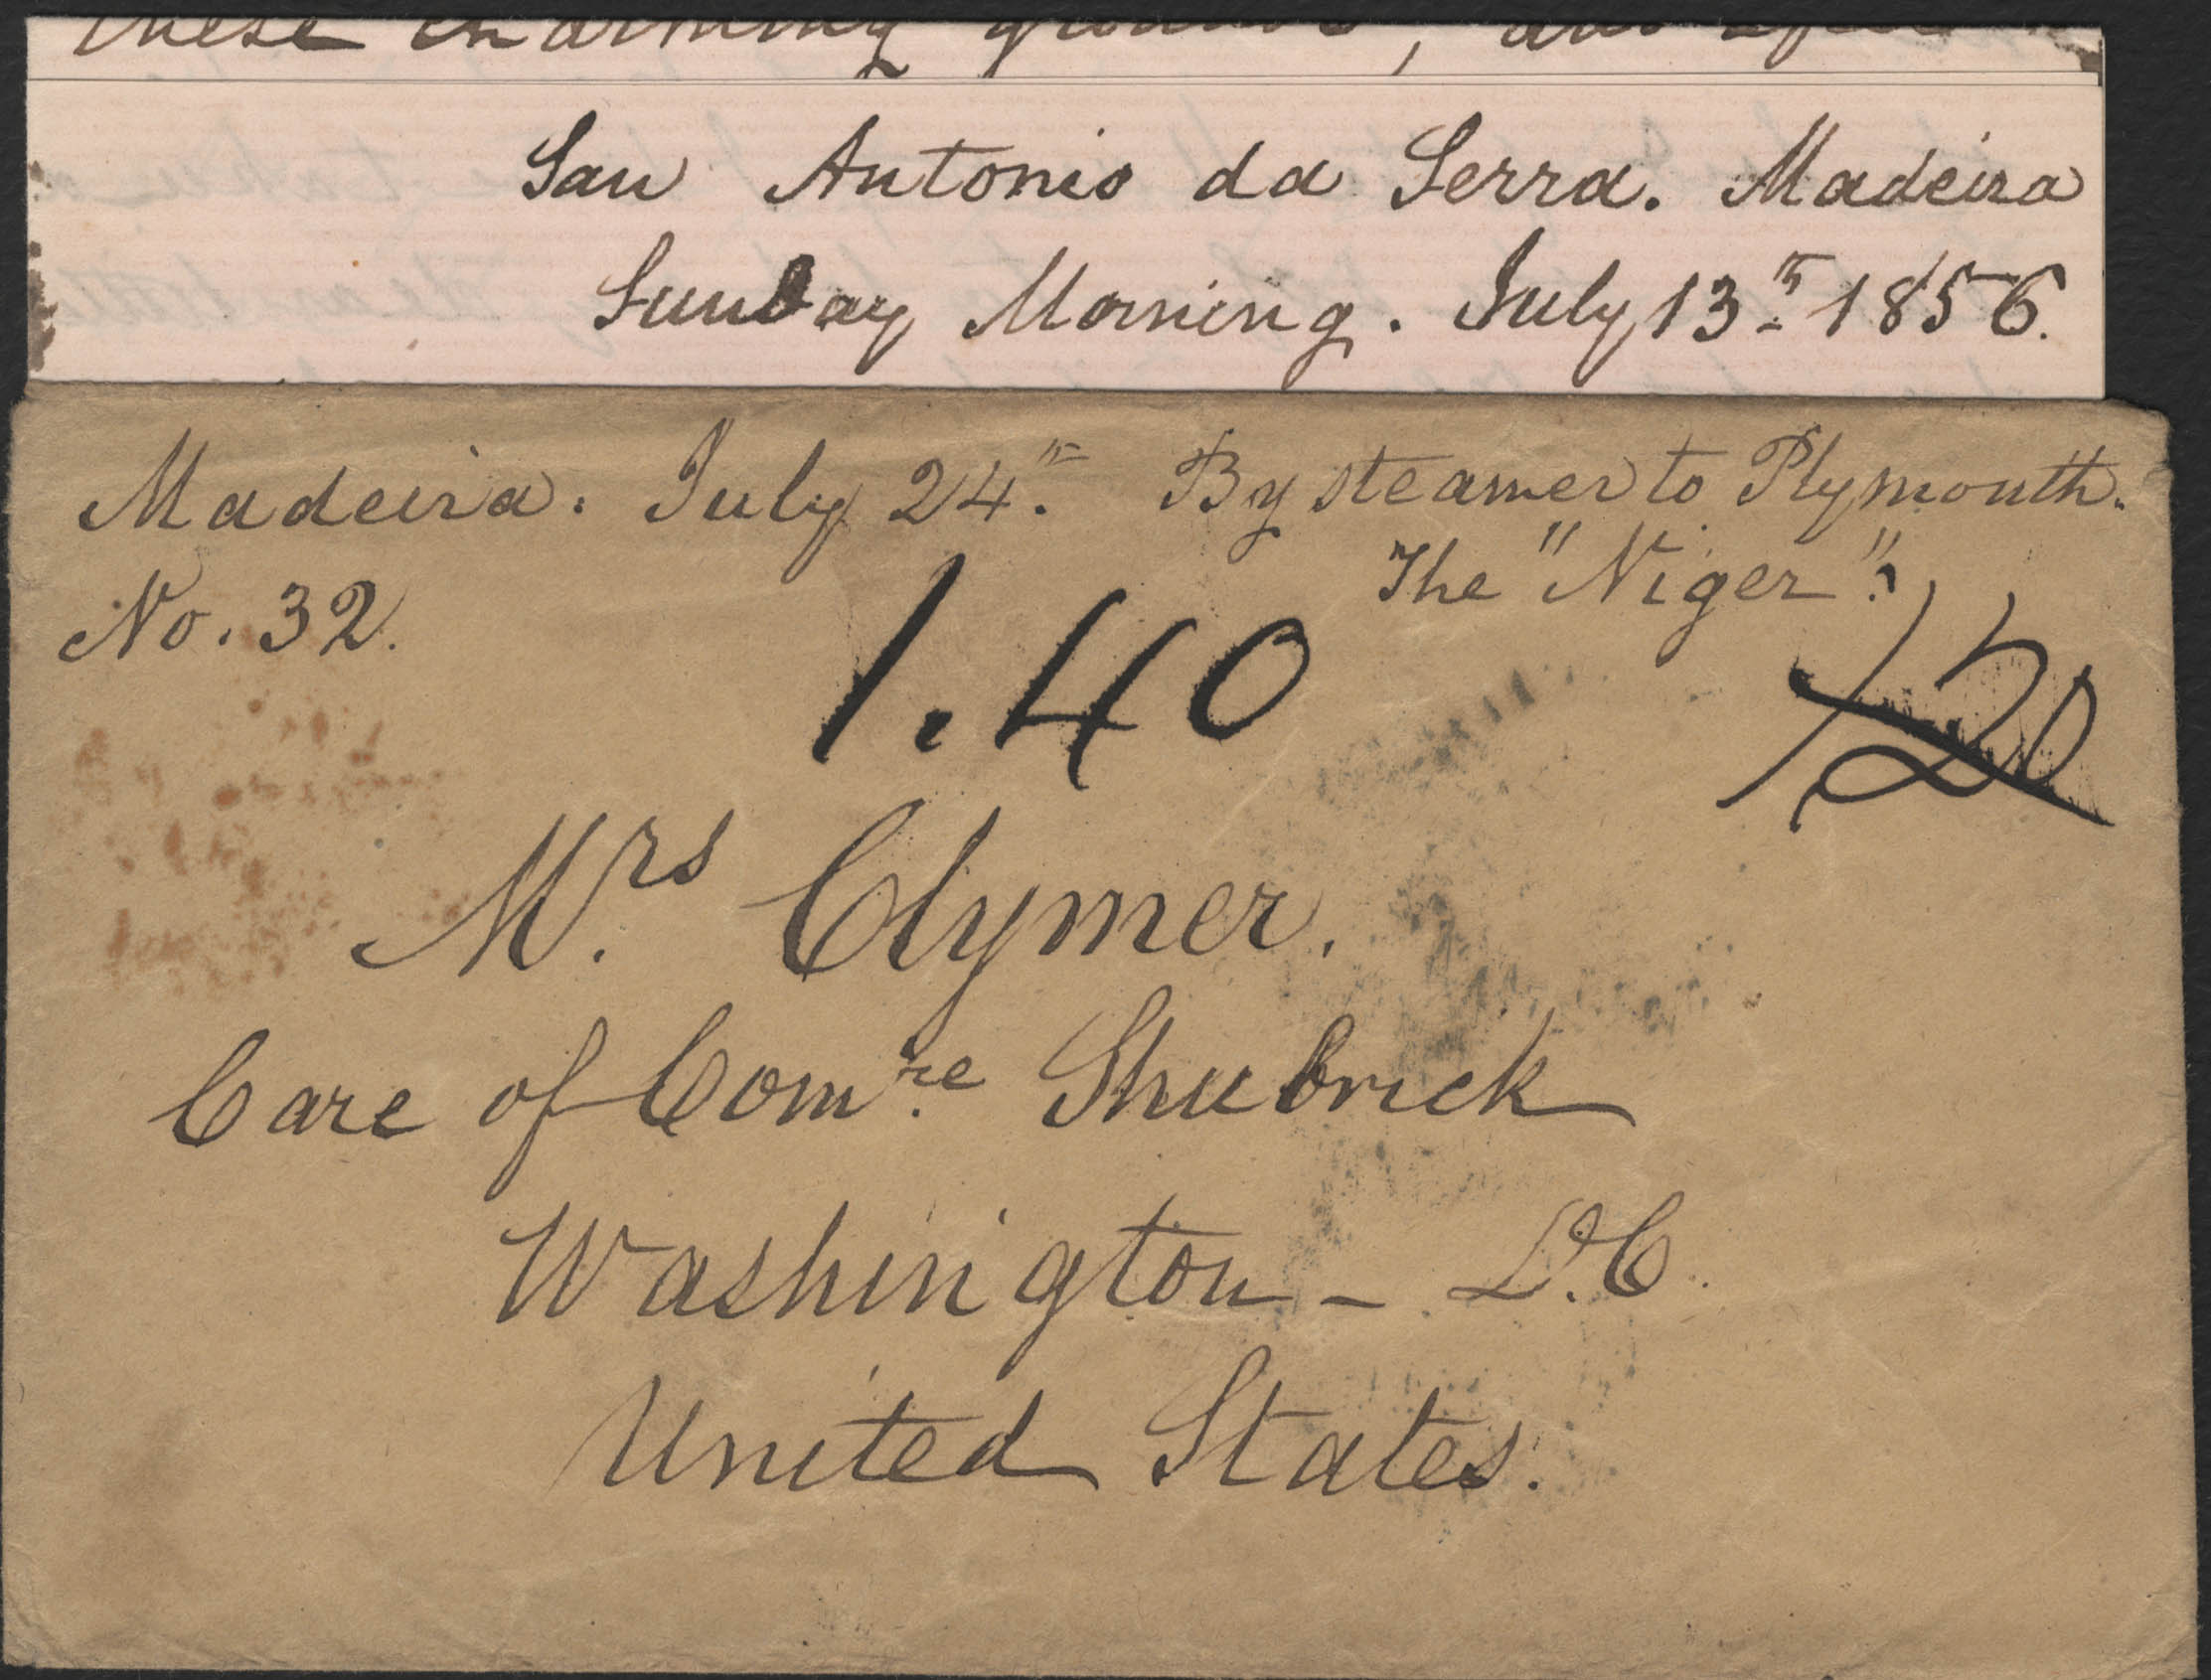 these charming grounds, and after
San Antonio da Serra. Madeira
Sunday Morning. July 13th 1856.
Madeira. July 24th. By steamer to Plymouth.
The "Niger".
No. 32.
1.40
120
Mrs. Clymer.
Care of Comre Shubrick
Washington - D.C.
United States.